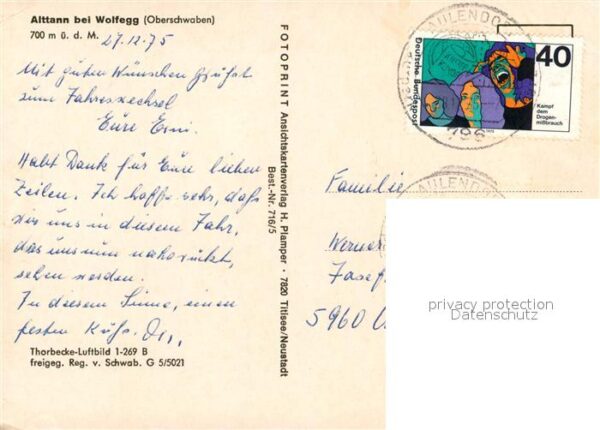 Alttann bei Wolfegg (Oberschwaben)
700 m ü. d. M.
27.12.75
Mit guten Wünschen
zum Jahreswechsel
Eure Erni.
Habt Dank für Eure lieben
Zeilen. Ich hoffe sehr, daß
wir uns in diesem Jahr,
das uns nun nahe rückt,
sehen werden.
In diesem Sinne, einen
festen Kuß.
Thorbecke-Luftbild 1-269 B
freigeg. Reg. v. Schwab. G 5/5021
FOTOPRINT Ansichtskartenverlag H. Plamper · 7820 Titisee/Neustadt
Best.-Nr. 716/5
AULENDORF
Deutsche Bundespost
40
Kampf
dem
Drogen-
mißbrauch
Familie
AULENDORF
Werner
Josef
5960
privacy protection
Datenschutz